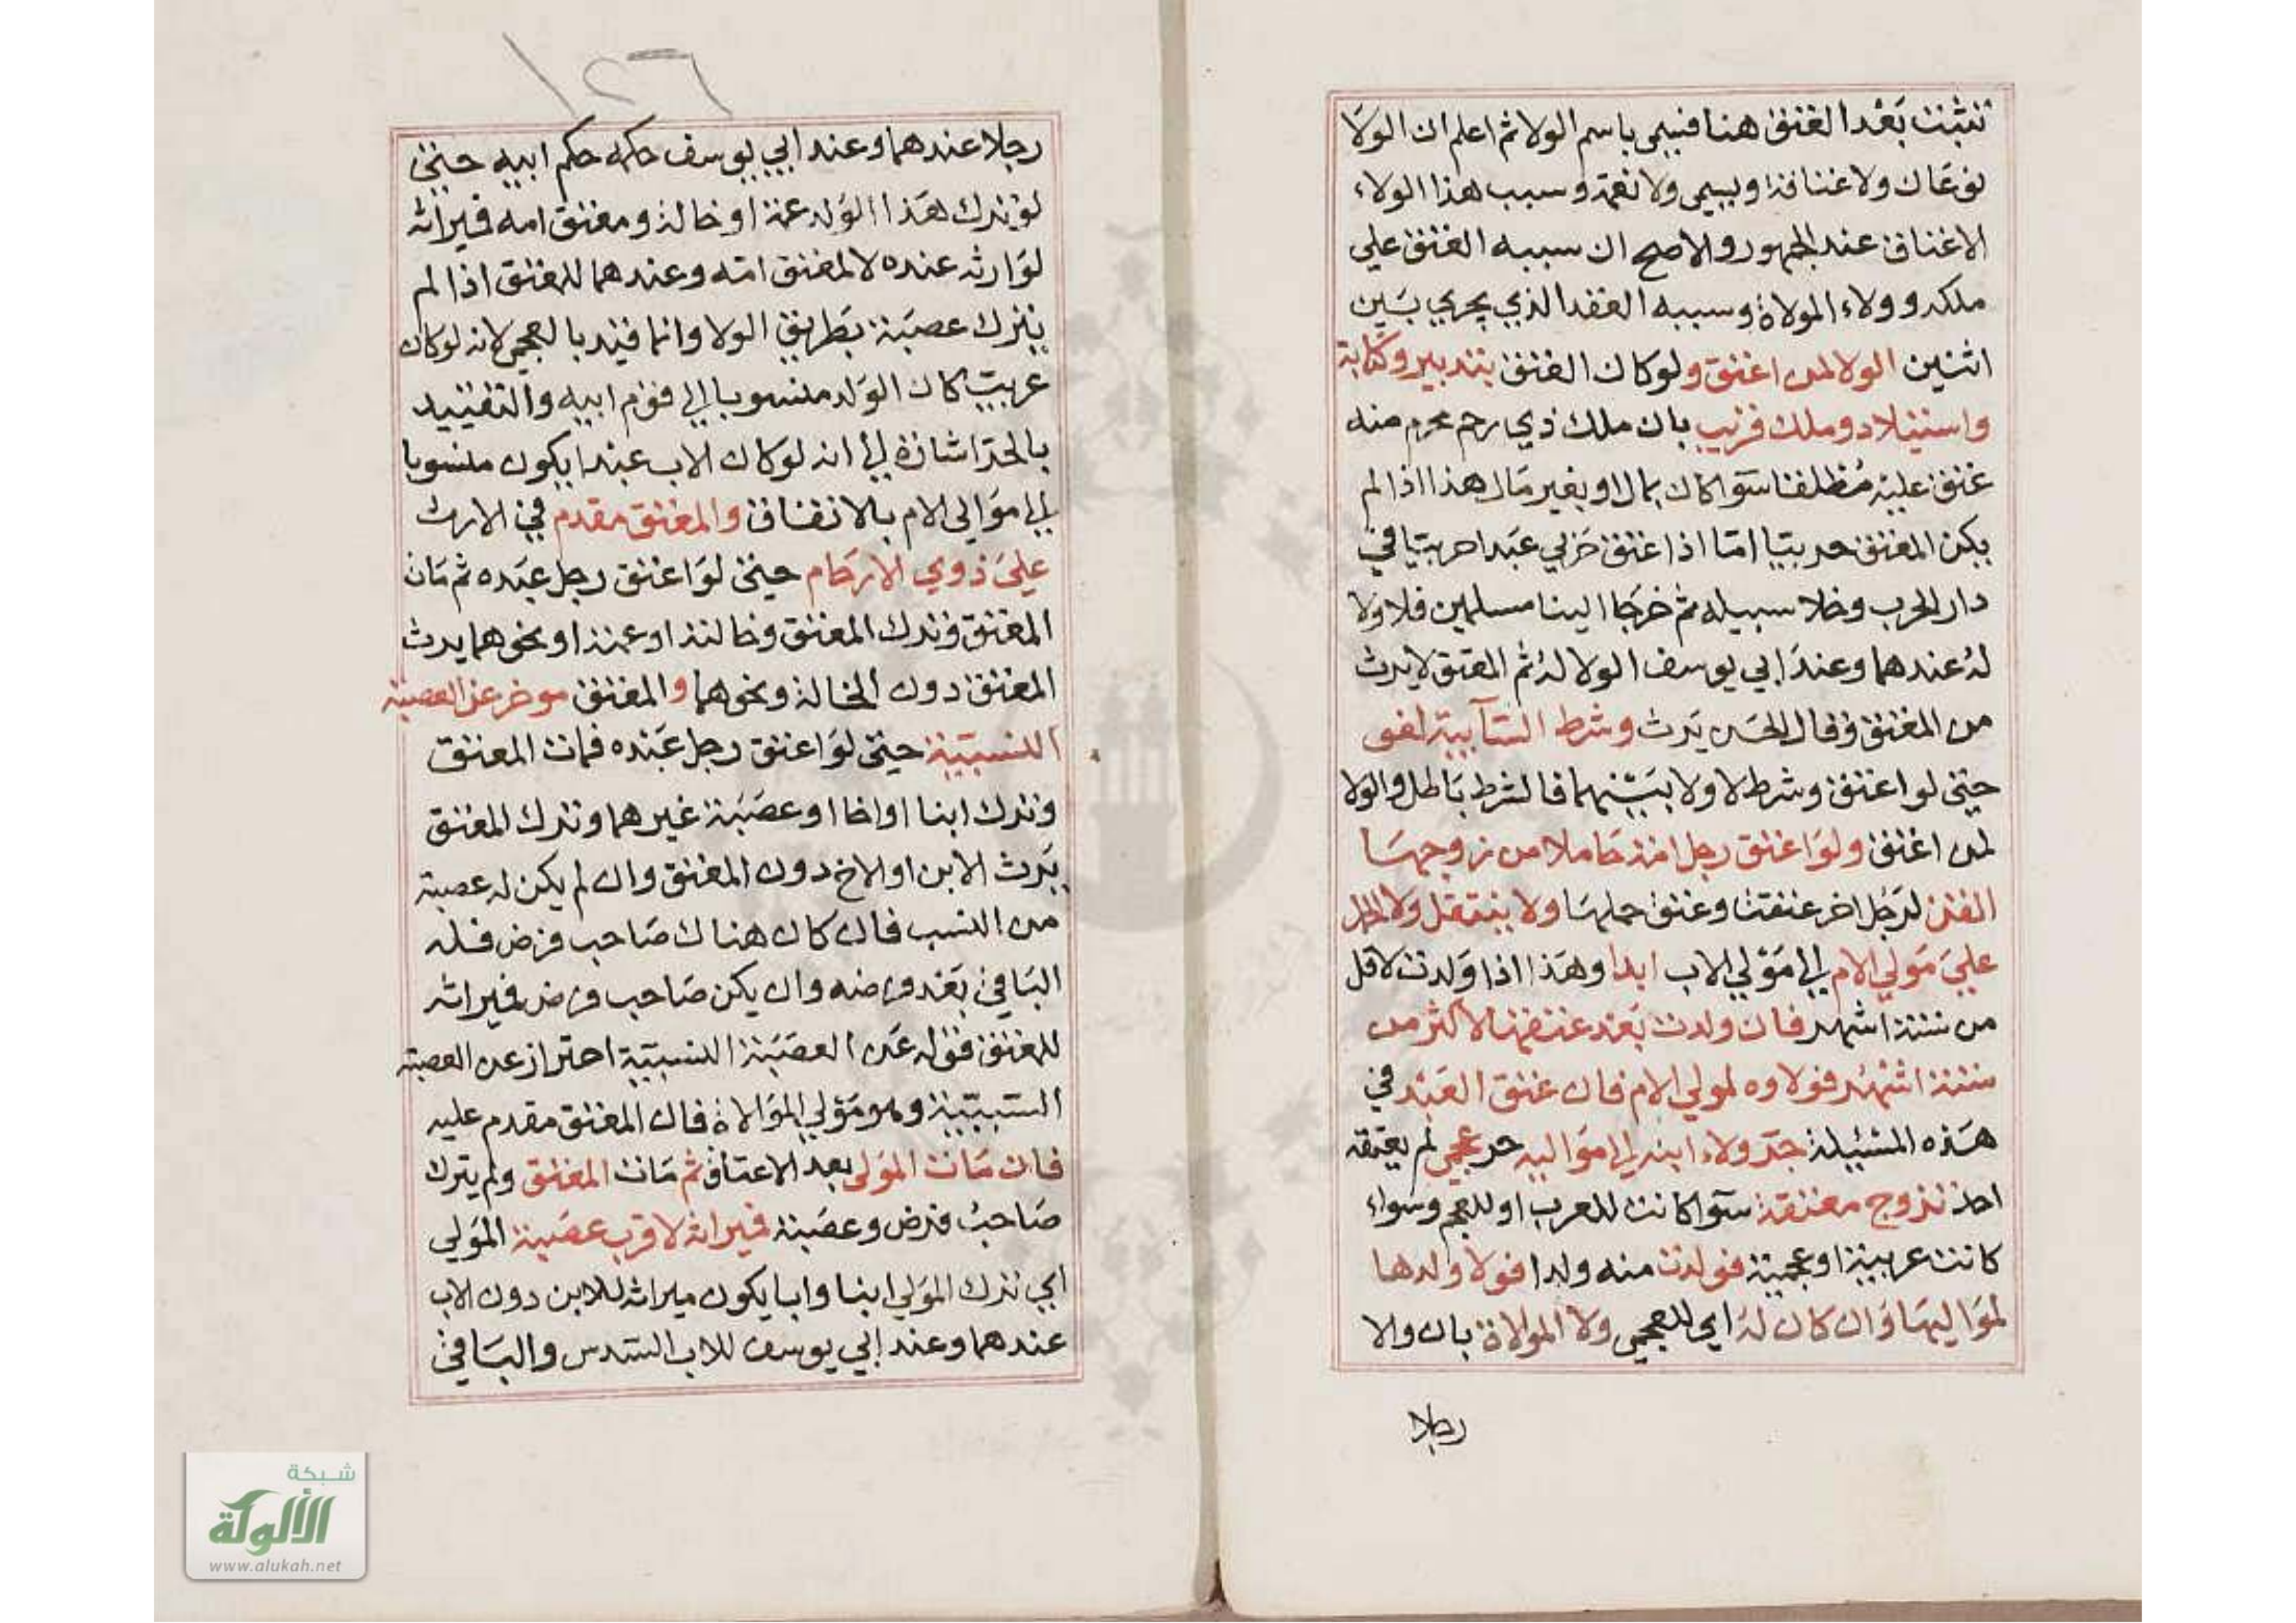 تثبت بعد العتق هنا فسمي باسم الولا ثم اعلم ان الولا
نوعان ولا عتاقة ويسمي ولا نعمة وسبب هذا الولاء
الاعتاق عند الجمهور والاصح ان سببه العتق علي
ملكه وولاء الموالاة وسببه العقد الذي يجري بين
اثنين الولا لمن اعتق ولو كان العتق بتدبير وكتابة
واستيلاد وملك قريب بان ملك ذي رحم محرم منه
عتق عليه مطلقا سوا كان بمال او بغير مال هذا اذا لم
يكن المعتق حربيا اما اذا اعتق حربي عبدا حربيا في
دار الحرب وخلا سبيله ثم خرجا الينا مسلمين فلا ولا
له عندهما وعند ابي يوسف الولا له ثم المعتق لا يرث
من المعتق وقال الحسن يرث وشرط السآيبة لغو
حتي لو اعتق وشرط لا ولا بينهما فالشرط باطل والولا
لمن اعتق ولو اعتق رجل امة حاملا من زوجها
القن لرجل اخر عتقت وعتق حملها ولا ينتقل ولا الحمل
علي مولي الام الي مولي الاب ابدا وهذا اذا ولدت لاقل
من ستة اشهر فان ولدت بعد عتقها لاكثر من
ستة اشهر فولاوه لمولي الام فان عتق العبد في
هذه المسئيلة جر ولاء ابنه الي مواليه حر عجمي لم يعتقه
احد تزوج معتقة سوا كانت للعرب او للعجم وسواء
كانت عربية او عجمية فولدت منه ولدا فولا ولدها
لمواليها وان كان له اي للعجمي ولا الموالاة بان والا
رجلا
١٢٦
رجلا عندهما وعند ابي يوسف حكمه حكم ابيه حتي
لو ترك هذا الولد عمة او خالة ومعتق امه فميراثه
لوارثه عنده لا لمعتق امه وعندهما للمعتق اذا لم
يترك عصبة بطريق الولا وانما قيد بالعجمي لانه لو كان
عربي كان الولد منسوبا الي قوم ابيه والتقييد
بالحر اشارة الي انه لو كان الاب عبدا يكون منسوبا
الي موالي الام بالاتفاق والمعتق مقدم في الارث
علي ذوي الارحام حتي لو اعتق رجل عبده ثم مات
المعتق وترك المعتق وخالته او عمته او نحوهما يرث
المعتق دون الخالة ونحوهما والمعتق موخر عن العصبة
النسبية حتي لو اعتق رجل عبده فمات المعتق
وترك ابنا او اخا او عصبة غيرهما وترك المعتق
يرث الابن او الاخ دون المعتق وان لم يكن له عصبة
من النسب فان كان هناك صاحب فرض فله
الباقي بعد فرضه وان يكن صاحب فرض فميراثه
للمعتق فقوله عن العصبة النسبية احتراز عن العصبة
السببية وهو مولي الموالاة فان المعتق مقدم عليه
فان مات المولي بعد الاعتاق ثم مات المعتق ولم يترك
صاحب فرض وعصبة فميراثه لاقرب عصبة المولي
اي ترك المولي ابنا وابا يكون ميراثه للابن دون الاب
عندهما وعند ابي يوسف للاب السدس والباقي
شبكة
الألوكة
www.alukah.net